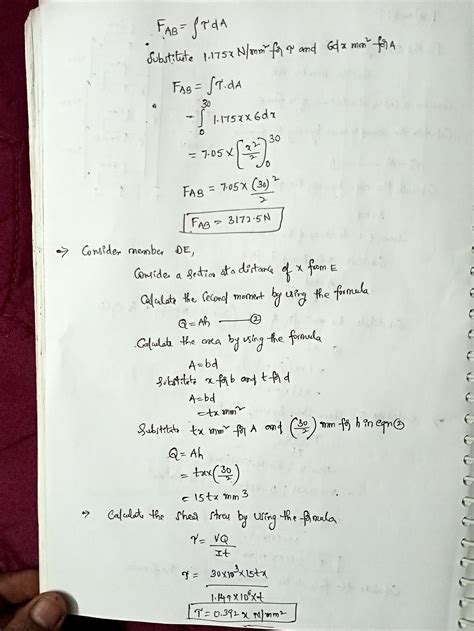 F_AB = ∫τdA
Substitute 1.175x N/mm² for τ and 6dx mm² for A
F_AB = ∫τ.dA
= ∫₀³⁰ 1.175x x 6dx
= 7.05 x [x²/2]₀³⁰
F_AB = 7.05 x (30)²/2
F_AB = 3172.5N
→ Consider member DE,
Consider a section at a distance of x from E
Calculate the second moment by using the formula
Q = Ah —— ②
Calculate the area by using the formula
A = bd
Substitute x for b and t for d
A = bd
= tx mm²
Substitute tx mm² for A and (30/2) mm for h in eqn ②
Q = Ah
= txx(30/2)
= 15tx mm³
→ Calculate the shear stress by using the formula
τ = VQ/It
τ = 30x10³x15tx / 1.149x10⁶xt
τ = 0.392 x N/mm²